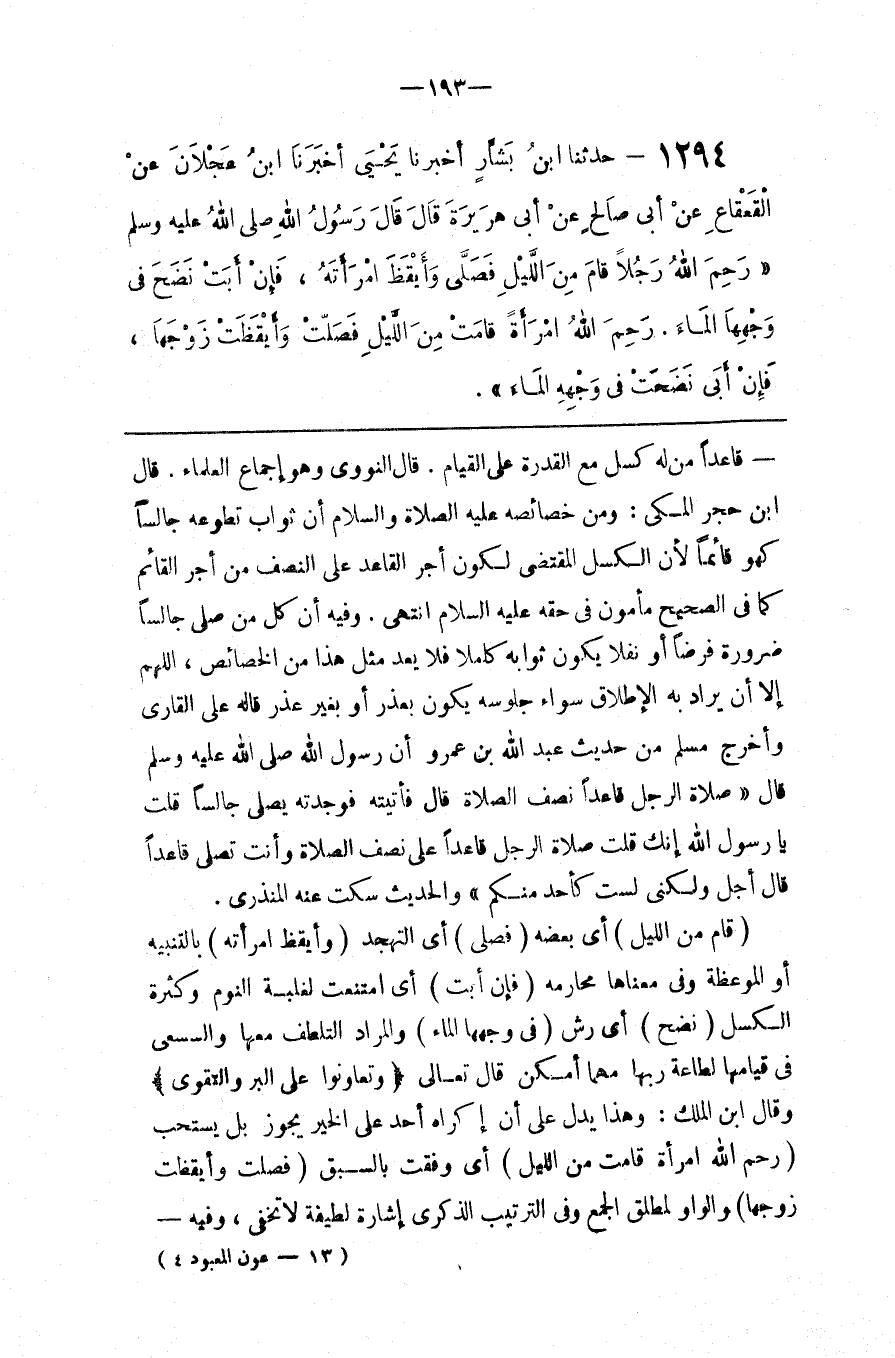 —١٩٣—
١٢٩٤ – حدثنا ابنُ بَشَّارٍ أخبرنا يَحْيَى أخبَرَنَا ابنُ عَجْلاَنَ عنْ
الْقَعْقَاعِ عنْ أبى صَالحٍ عنْ أبى هرَيرَةَ قَالَ قَالَ رَسُولُ اللهِ صلى اللهُ عليه وسلم
« رَحِمَ اللهُ رَجُلاً قامَ مِنَ اللَّيْلِ فَصَلَّى وَأَيْقَظَ امْرَأَتَهُ ، فَإِنْ أَبَتْ نَضَحَ فى
وَجْهِهَا المَـاءَ . رَحِمَ اللهُ امْرَأَةً قامَتْ مِنَ اللَّيْلِ فَصَلّتْ وَأَيْقَظَتْ زَوْجَهَا ،
فَإِنْ أَبَى نَضَحَتْ فى وَجْهِهِ المَـاءَ » .
— قاعداً من له كسل مع القدرة على القيام . قال النووى وهو إجماع العلماء . قال
ابن حجر المـكى : ومن خصائصه عليه الصلاة والسلام أن ثواب تطوعه جالساً
كهو قائماً لأن الـكسل المقتضى لـكون أجر القاعد على النصف من أجر القائم
كما فى الصحيح مأمون فى حقه عليه السلام انتهى . وفيه أن كل من صلى جالساً
ضرورة فرضاً أو نفلا يكون ثوابه كاملا فلا يعد مثل هذا من الخصائص ، اللهم
إلا أن يراد به الإطلاق سواء جلوسه يكون بعذر أو بغير عذر قاله على القارى
وأخرج مسلم من حديث عبد الله بن عمرو أن رسول الله صلى الله عليه وسلم
قال « صلاة الرجل قاعداً نصف الصلاة قال فأتيته فوجدته يصلى جالساً قلت
يا رسول الله إنك قلت صلاة الرجل قاعداً على نصف الصلاة وأنت تصلى قاعداً
قال أجل ولـكنى لست كأحد منـكم » والحديث سكت عنه المنذرى .
( قام من الليل ) أى بعضه ( فصلى ) أى التهجد ( وأيقظ امرأته ) بالتنبيه
أو الموعظة وفى معناها محارمه ( فإن أبت ) أى امتنعت لغلبـة النوم وكثرة
الـكسل ( نضح ) أى رش ( فى وجهها الماء ) والمراد التلطف معها والسعى
فى قيامها لطاعة ربها مهما أمـكن قال تعـالى ﴿ وتعاونوا على البر والتقوى ﴾
وقال ابن الملك : وهذا يدل على أن إكراه أحد على الخير يجوز بل يستحب
( رحم الله امرأة قامت من الليل ) أى وفقت بالسـبق ( فصلت وأيقظت
زوجها) والواو لمطلق الجمع وفى الترتيب الذكرى إشارة لطيفة لاتخفى ، وفيه —
( ١٣ — عون المعبود ٤ )